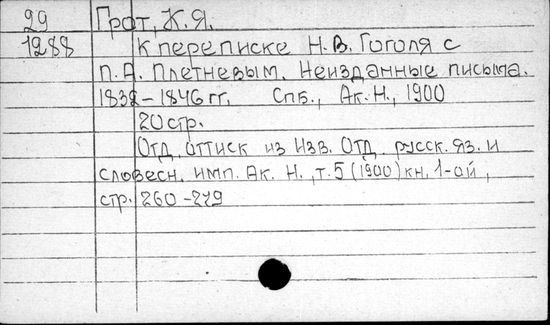 29 Грот, К.Я.
1288 К переписке Н.В. Гоголя с
П.А. Плетневым. Неизданные письма.
1832–1846 гг. Спб., Ак.Н., 1900
20 стр.
Отд. оттиск из Изв. Отд. русск. яз. и
словесн. имп. Ак. Н., т.5 (1900) кн. 1-ой,
стр. 260–279